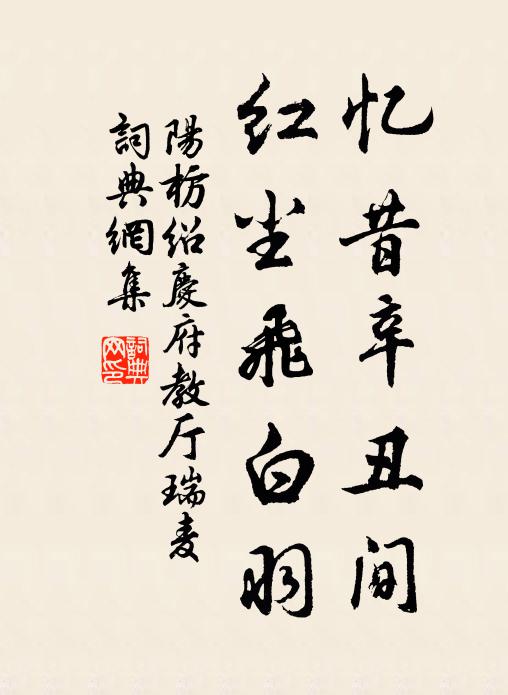 忆昔辛丑间
红尘飛白羽
陽枋绍慶府教厅瑞麦
詞典網集
詞典網印